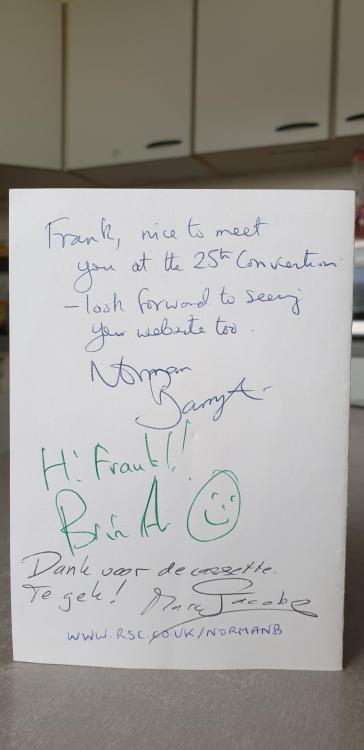 Frank, nice to meet
you at the 25th Convention
– look forward to seeing
your website too.
Norman
Barry A
Hi Frank!!
Dank voor de cassette.
Te gek! Marc Jacobs
WWW.RSC.CO.UK/NORMANB